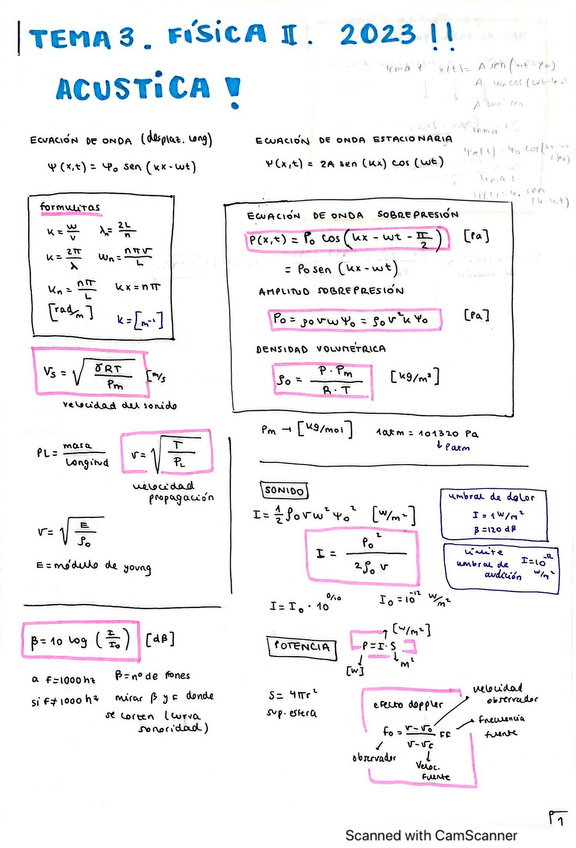 TEMA 3. FÍSICA II. 2023!!
ACUSTICA!
ECUACIÓN DE ONDA (desplaz. long)
Ψ(x,t) = Ψo sen (kx-wt)
ECUACIÓN DE ONDA ESTACIONARIA
Ψ(x,t) = 2A sen (kx) cos (wt)
formulitas
k = w/v λn = 2L/n
k = 2π/λ wn = nπv/L
kn = nπ/L kx = nπ
[rad/m] k = [m⁻¹]
ECUACIÓN DE ONDA SOBREPRESIÓN
P(x,t) = Po cos (kx - wt - π/2) [Pa]
= Po sen (kx - wt)
AMPLITUD SOBREPRESIÓN
Po = ρo v w Ψo = ρo v² k Ψo [Pa]
DENSIDAD VOLUMÉTRICA
ρo = P · Pm / R · T [kg/m³]
Vs = √(γRT/Pm) [m/s
velocidad del sonido
Pm → [kg/mol] 1atm = 101320 Pa
↓ Patm
PL = masa/longitud
v = √(T/PL)
velocidad
propagación
v = √(E/ρo)
E = módulo de young
SONIDO
I = 1/2 ρo v w² Ψo² [W/m²]
I = Po² / 2ρo v
I = Io · 10^(β/10) Io = 10⁻¹² W/m²
umbral de dolor
I = 1 W/m²
β = 120 dB
límite
umbral de audición I = 10⁻¹² W/m²
β = 10 log (I/Io) [dB]
a f=1000 hz β = nº de fones
si f≠1000 hz mirar β y f donde
se corten (curva
sonoridad)
POTENCIA
[W/m²]
P = I · S
[W] m²
S = 4πr²
sup. esfera
efecto doppler
velocidad
observador
fo = (v-vo)/(v-vf) ff
frecuencia
fuente
observador
veloc.
fuente
P1
Scanned with CamScanner